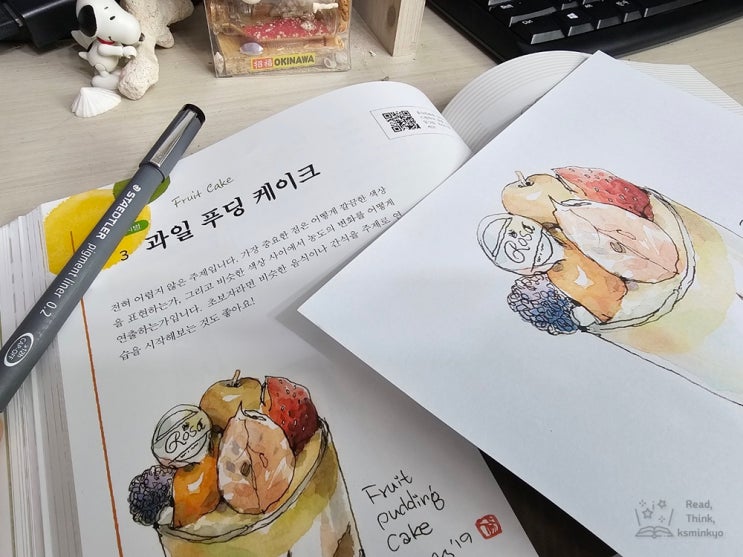 招福 OKINAWA
STAEDTLER
pigment liner 0.2
CAP ON
Fruit Cake
3 과일 푸딩 케이크
전혀 어렵지 않은 주제입니다. 가장 중요한 점은 어떻게 각각의 색상
을 표현하는가, 그리고 비슷한 색상 사이에서 농도의 변화를 어떻게
연출하는가입니다. 초보자라면 비슷한 음식이나 간식을 주제로 연
습을 시작해보는 것도 좋아요!
Rosa
Rosa
Fruit
pudding
Cake
'19
Read,
Think,
ksminkyo